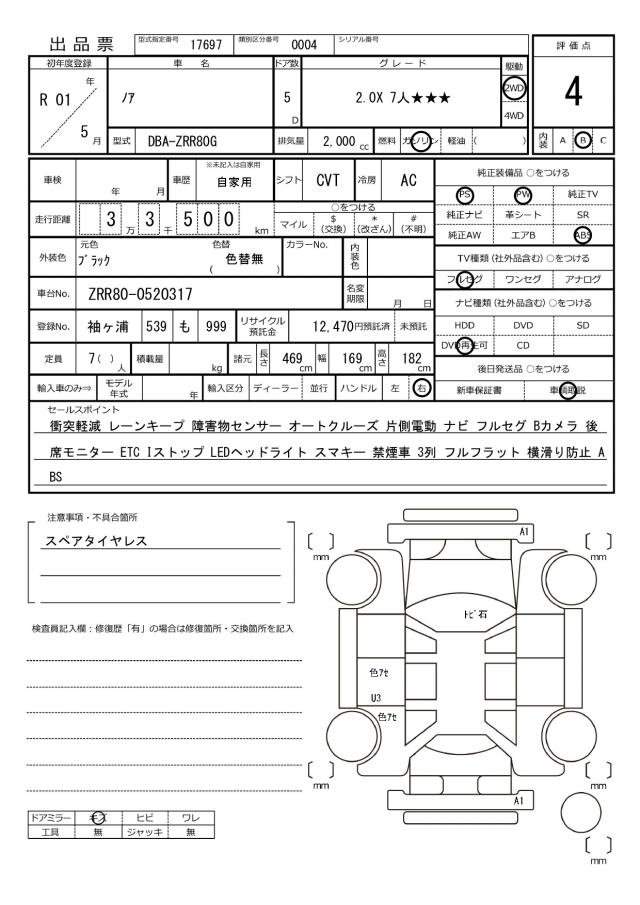 出品票
型式指定番号 17697 類別区分番号 0004 シリアル番号
評価点
4
初年度登録 車名 ドア数 グレード 駆動
R 01 年 5 月
ノア
5 D
2.0X 7人★★★
2WD
4WD
型式 DBA-ZRR80G 排気量 2,000 cc 燃料 ガソリン 軽油 ( )
内装 A B C
車検 年 月 車歴 ※未記入は自家用 自家用 シフト CVT 冷房 AC
走行距離 3 万 3 千 5 0 0 km
○をつける
マイル $(交換) *(改ざん) #(不明)
外装色 元色 ブラック 色替 色替無 ( ) カラーNo. 内装色
車台No. ZRR80-0520317 名変期限 月 日
登録No. 袖ヶ浦 539 も 999 リサイクル預託金 12,470円預託済 未預託
定員 7( )人 積載量 kg 諸元 長さ 469 cm 幅 169 cm 高さ 182 cm
輸入車のみ⇒ モデル年式 年 輸入区分 ディーラー 並行 ハンドル 左 右
純正装備品 ○をつける
PS PW 純正TV
純正ナビ 革シート SR
純正AW エアB ABS
TV種類 (社外品含む) ○をつける
フルセグ ワンセグ アナログ
ナビ種類 (社外品含む) ○をつける
HDD DVD SD
DVD再生可 CD
後日発送品 ○をつける
新車保証書 車輌取説
セールスポイント
衝突軽減 レーンキープ 障害物センサー オートクルーズ 片側電動 ナビ フルセグ Bカメラ 後
席モニター ETC Iストップ LEDヘッドライト スマキー 禁煙車 3列 フルフラット 横滑り防止 A
BS
注意事項・不具合箇所
スペアタイヤレス
検査員記入欄:修復歴「有」の場合は修復箇所・交換箇所を記入
ドアミラー キズ ヒビ ワレ
工具 無 ジャッキ 無
A1
mm
mm
トビ石
色アセ
U3
色アセ
mm
mm
A1
mm